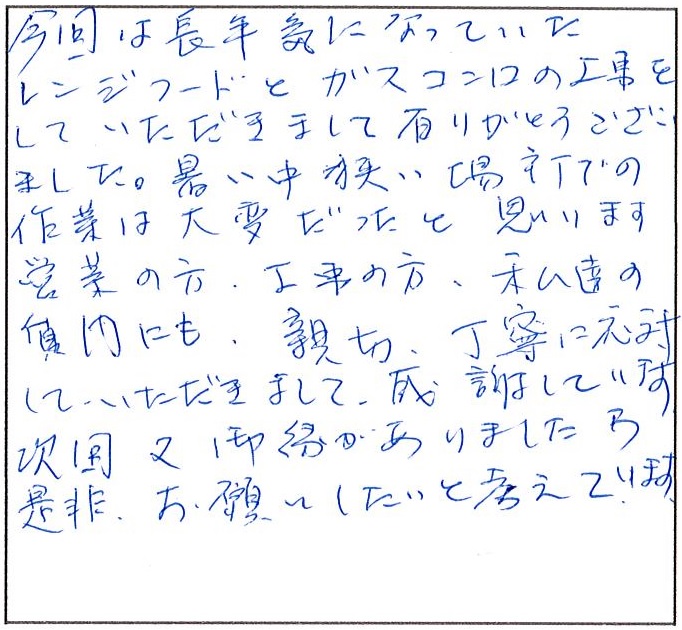 今回は長年気になっていた
レンジフードとガスコンロの工事を
していただきまして有りがとうござい
ました。暑い中狭い場所での
作業は大変だったと思います
営業の方、工事の方、私達の
質問にも、親切、丁寧に応対
していただきまして、感謝しています
次回又御縁がありましたら
是非、お願いしたいと考えています